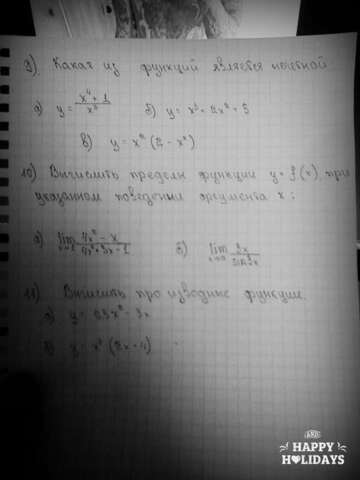 9). Какая из функций является нечетной
а) y = (x⁴ + 1)/x³ б) y = x³ + 2x² + 5
в) y = x² (2 - x²)
10) Вычислить пределы функции y = f(x) при
указанном поведении аргумента x:
а) lim б) lim 3x
11) Вычислить производные функции.
а) y = 0,5x² - 3x
б) y = x³ (2x - 4)
AND
HAPPY
HOLIDAYS